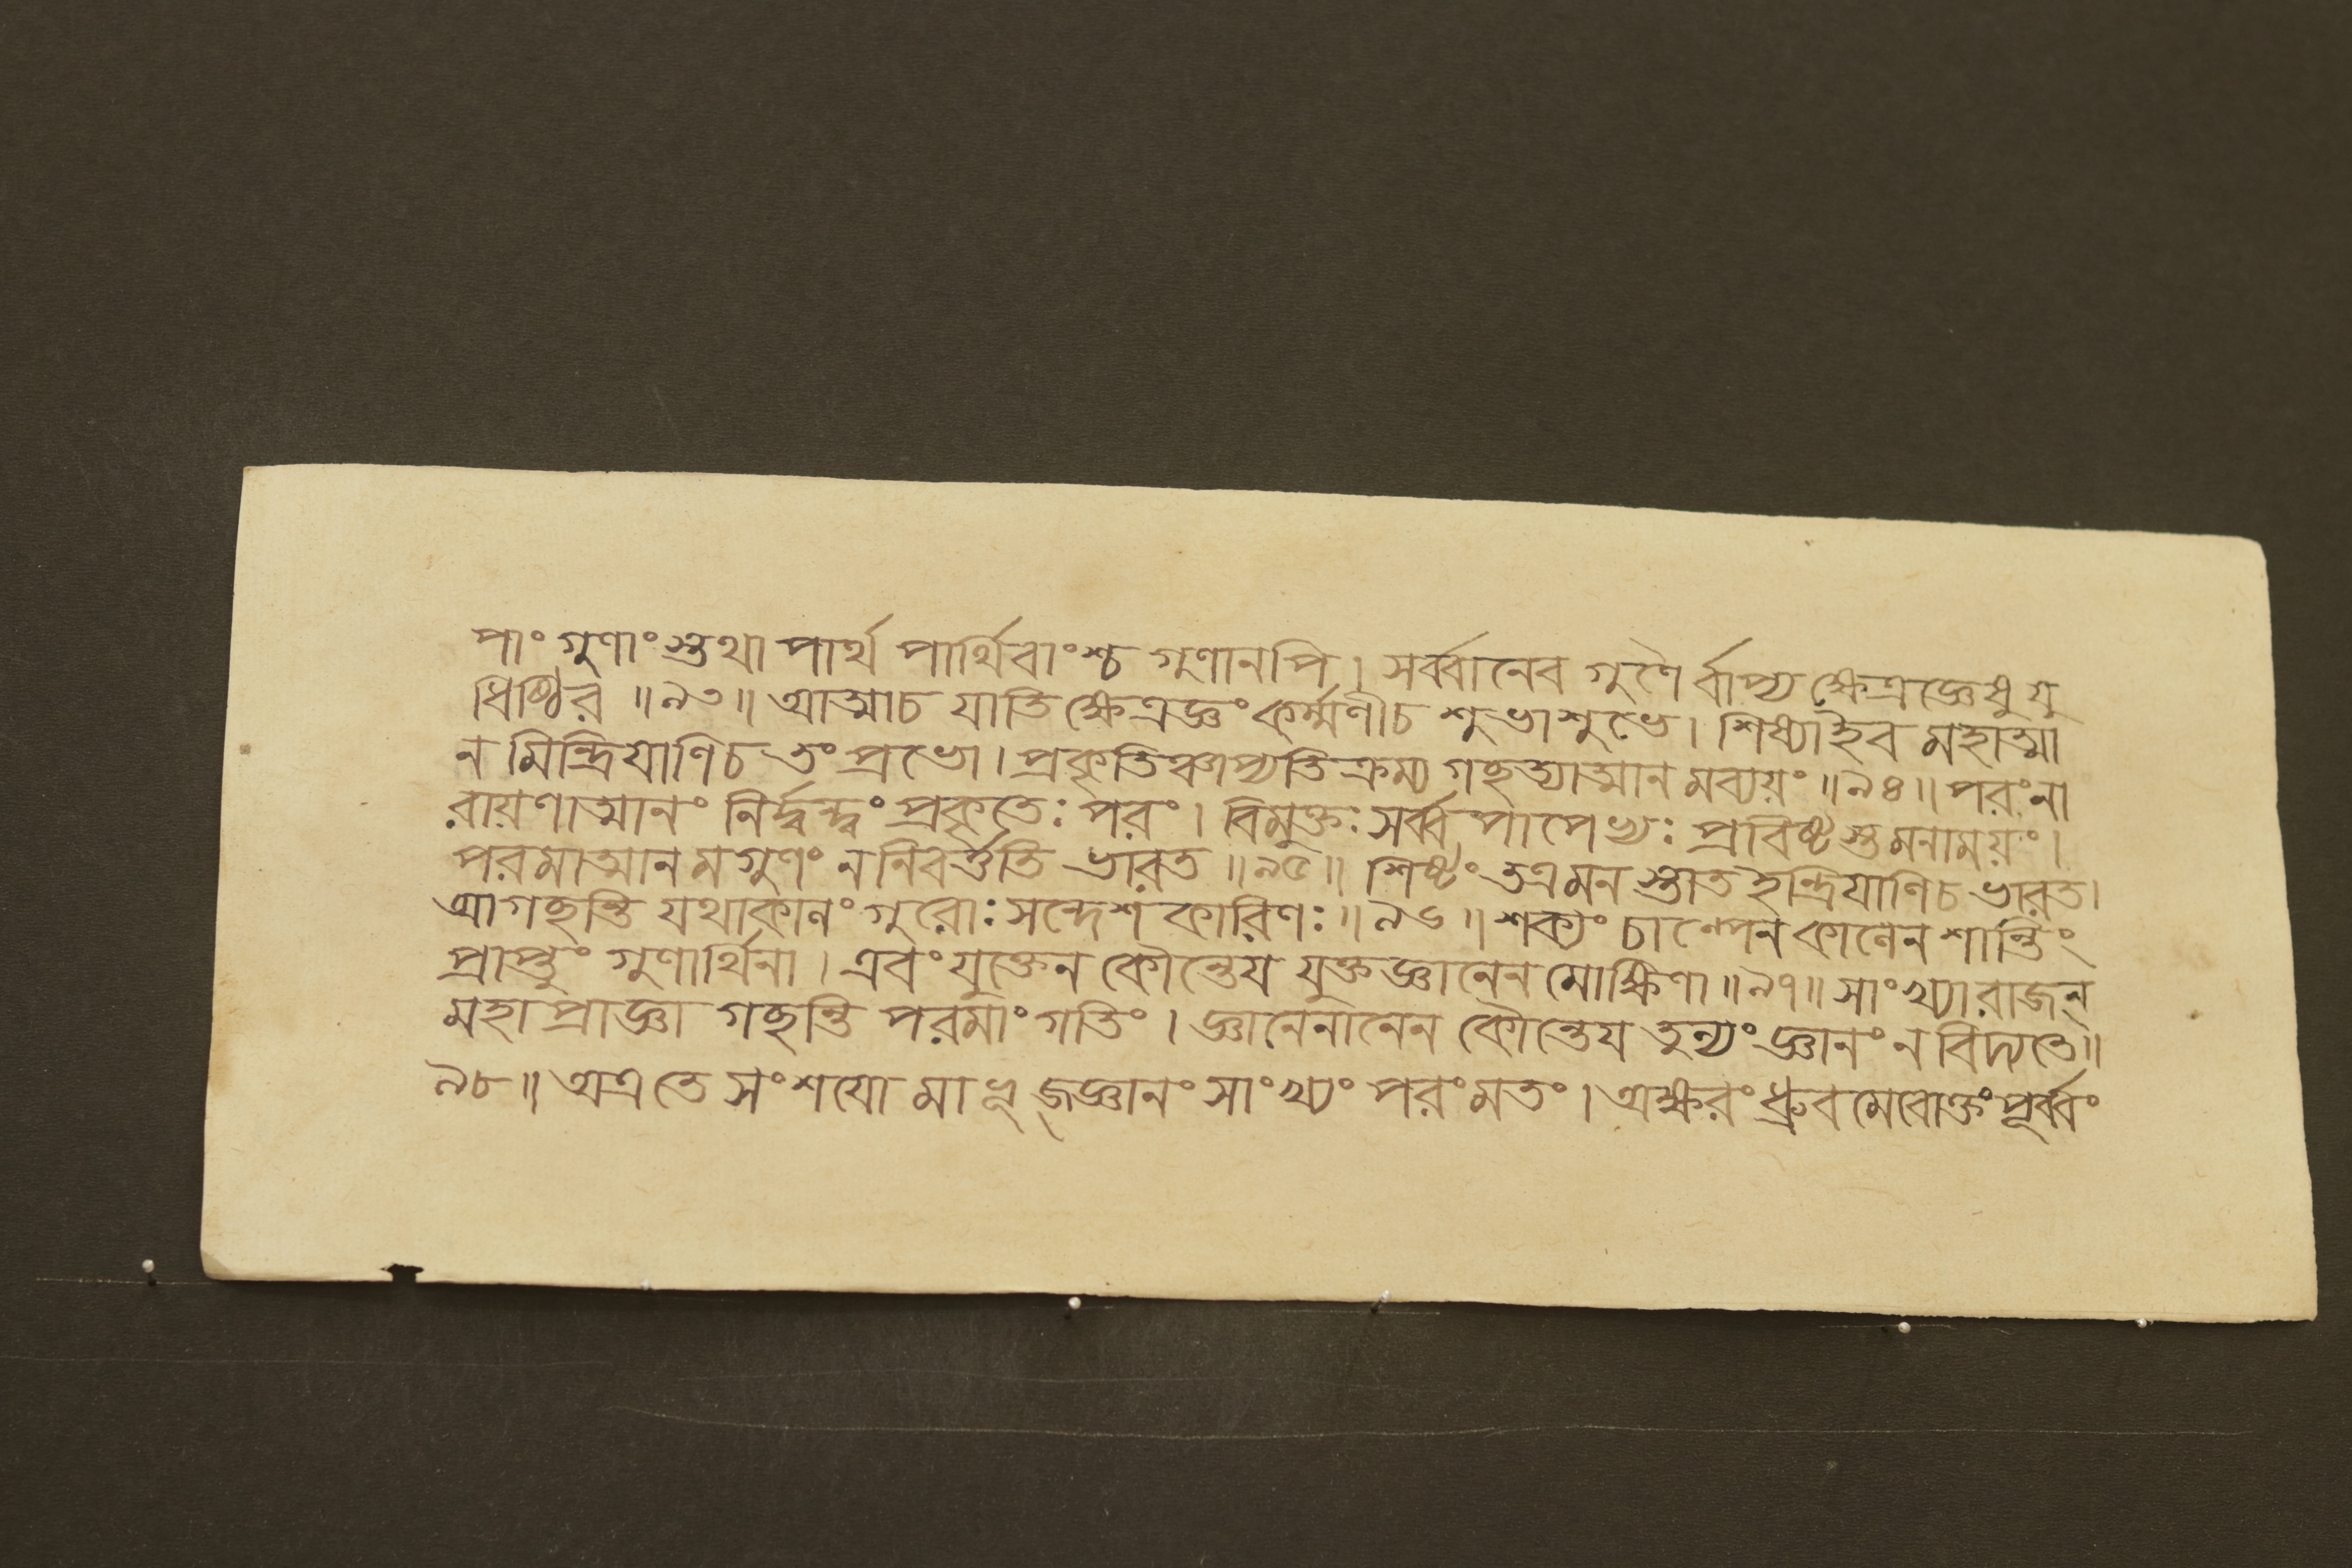 পাং গুণাংস্তথা পার্থ পার্থিবাংশ্চ গুণানপি। সর্ব্বানেব গুণৈর্ব্বাপ্য ক্ষেত্রজ্ঞেষু যু
ধিষ্ঠির ॥৯৩॥ আত্মাচ যাতি ক্ষেত্রজ্ঞং কর্ম্মণীচ শুভাশুভে। শিষ্যাইব মহাত্মা
ন মিন্দ্রিযাণিচ তং প্রভো। প্রকৃতিঞ্চাপ্যতিক্রম্য গচ্ছত্যাত্মান মব্যয়ং ॥৯৪॥ পরংনা
রায়ণাত্মানং নির্দ্বন্দ্বং প্রকৃতেঃ পরং। বিমুক্তঃ সর্ব্বপাপেভ্যঃ প্রবিষ্টস্তমনাময়ং।
পরমাত্মান মগুণং ননিবর্ত্ততি ভারত ॥৯৫॥ শিষ্টং তত্রমনস্তাত ইন্দ্রিযাণিচ ভারত।
আগচ্ছন্তি যথাকালং গুরোঃ সন্দেশ কারিণঃ ॥৯৬॥ শক্যং চাল্পেন কালেন শান্তিং
প্রাপ্তুং গুণার্থিনা। এবং যুক্তেন কৌন্তেয যুক্তজ্ঞানেন মোক্ষিণা ॥৯৭॥ সাংখ্যারাজন্
মহাপ্রাজ্ঞা গচ্ছন্তি পরমাং গতিং। জ্ঞানেনানেন কৌন্তেয তুল্যং জ্ঞানং ন বিদ্যতে॥
৯৮॥ অত্র তে সংশযো মা ভূজ্জ্ঞানং সাংখ্যং পরং মতং। অক্ষরং ধ্রুবমেবোক্তং পূর্ব্বং